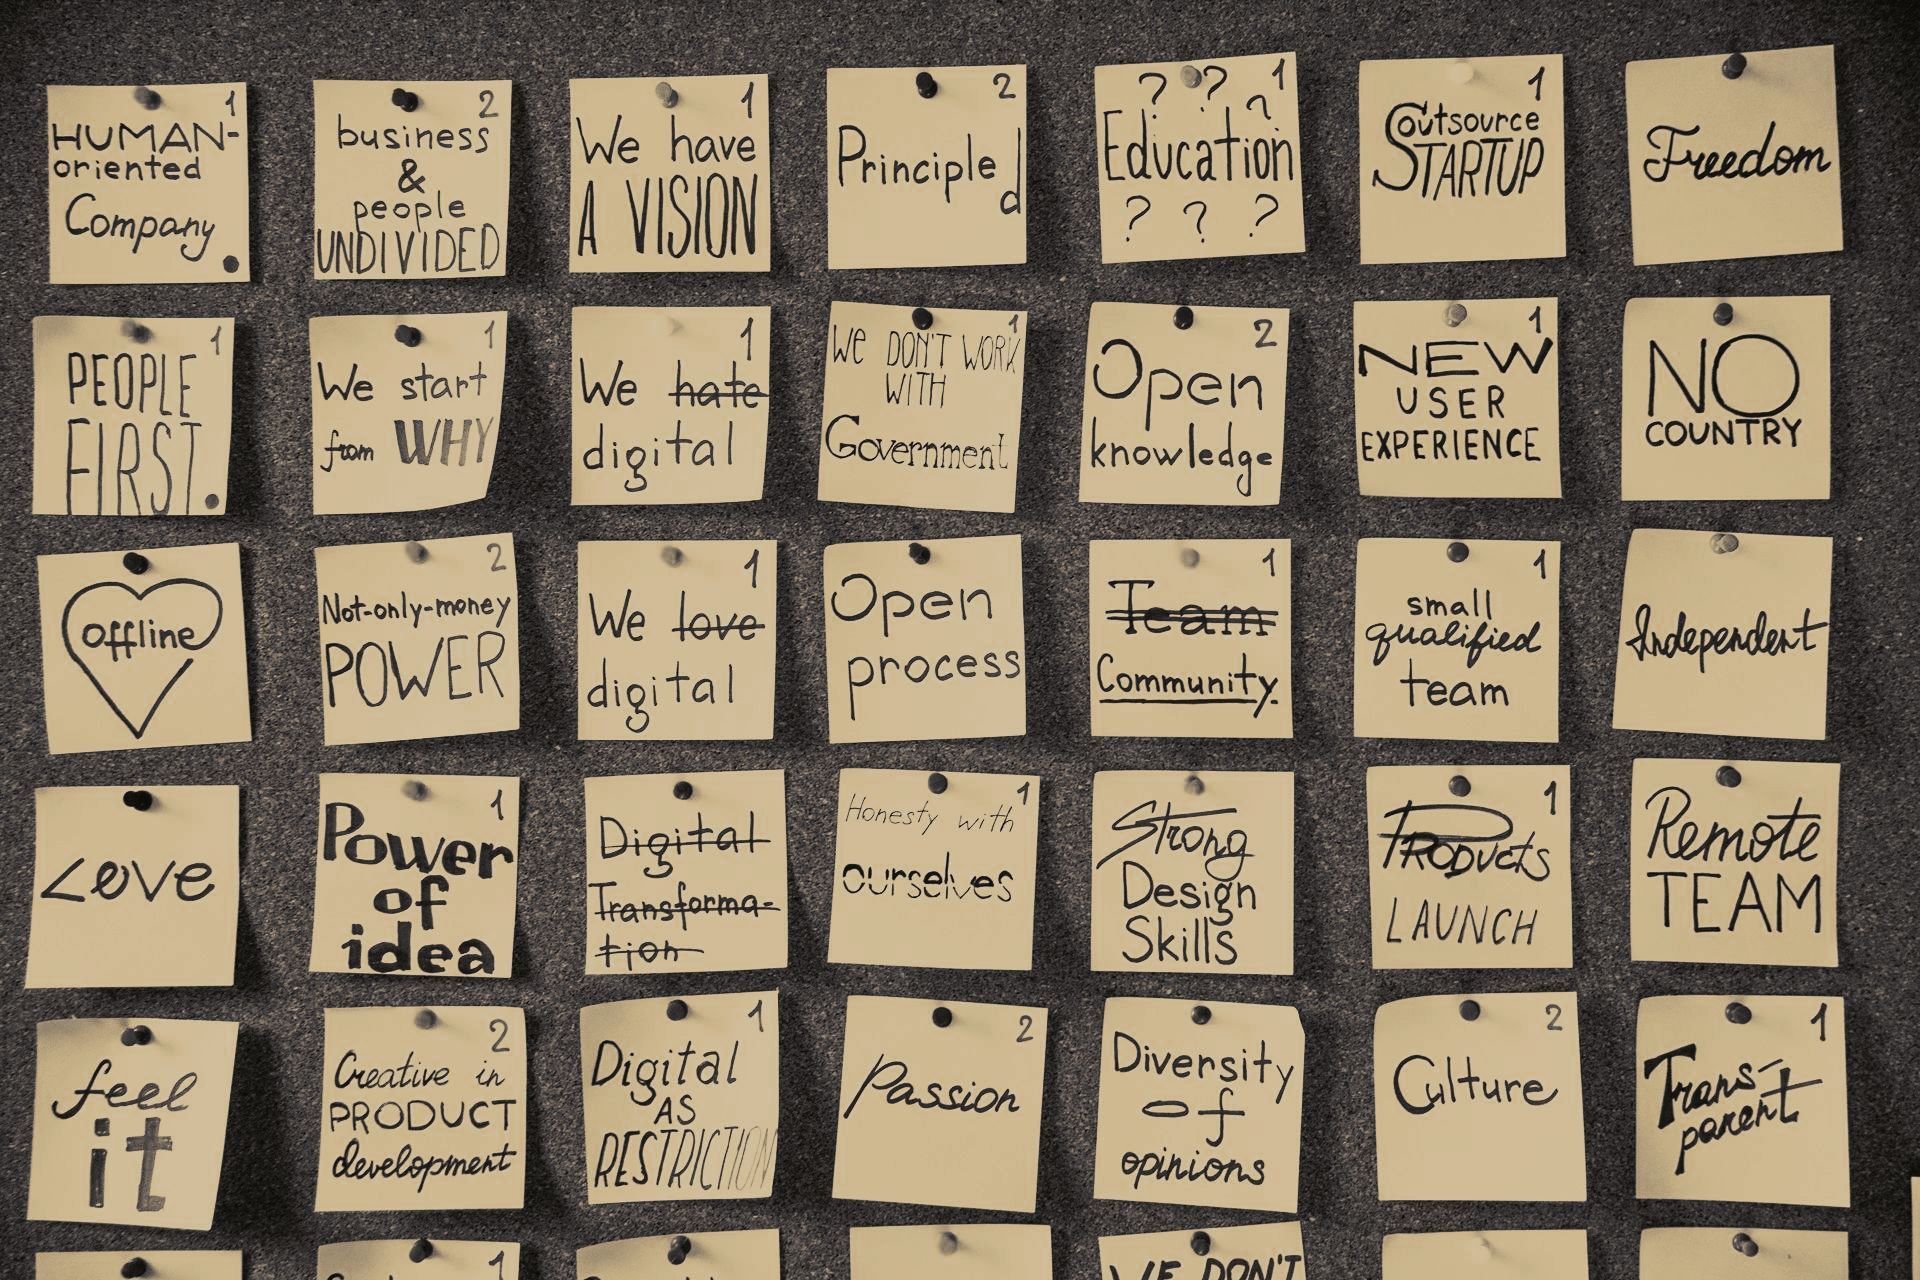 1
HUMAN-
oriented
Company.
2
business
&
people
UNDIVIDED
1
We have
A VISION
2
Principled
? ? ? 1
Education
? ? ?
1
Outsource
STARTUP
Freedom
1
PEOPLE
FIRST.
1
We start
from WHY
1
We hate
digital
1
We DON'T WORK
WITH
Government
2
Open
knowledge
1
NEW
USER
EXPERIENCE
NO
COUNTRY
offline
2
Not-only-money
POWER
1
We love
digital
Open
process
1
Team
Community.
1
small
qualified
team
Independent
Love
1
Power
of
idea
Digital
Transforma-
tion
1
Honesty with
ourselves
Strong
Design
Skills
1
PRODUCTS
LAUNCH
Remote
TEAM
feel
it
2
Creative in
PRODUCT
development
1
Digital
AS
RESTRICTION
2
Passion
Diversity
of
opinions
2
Culture
1
Trans-
parent
1
WE DON'T